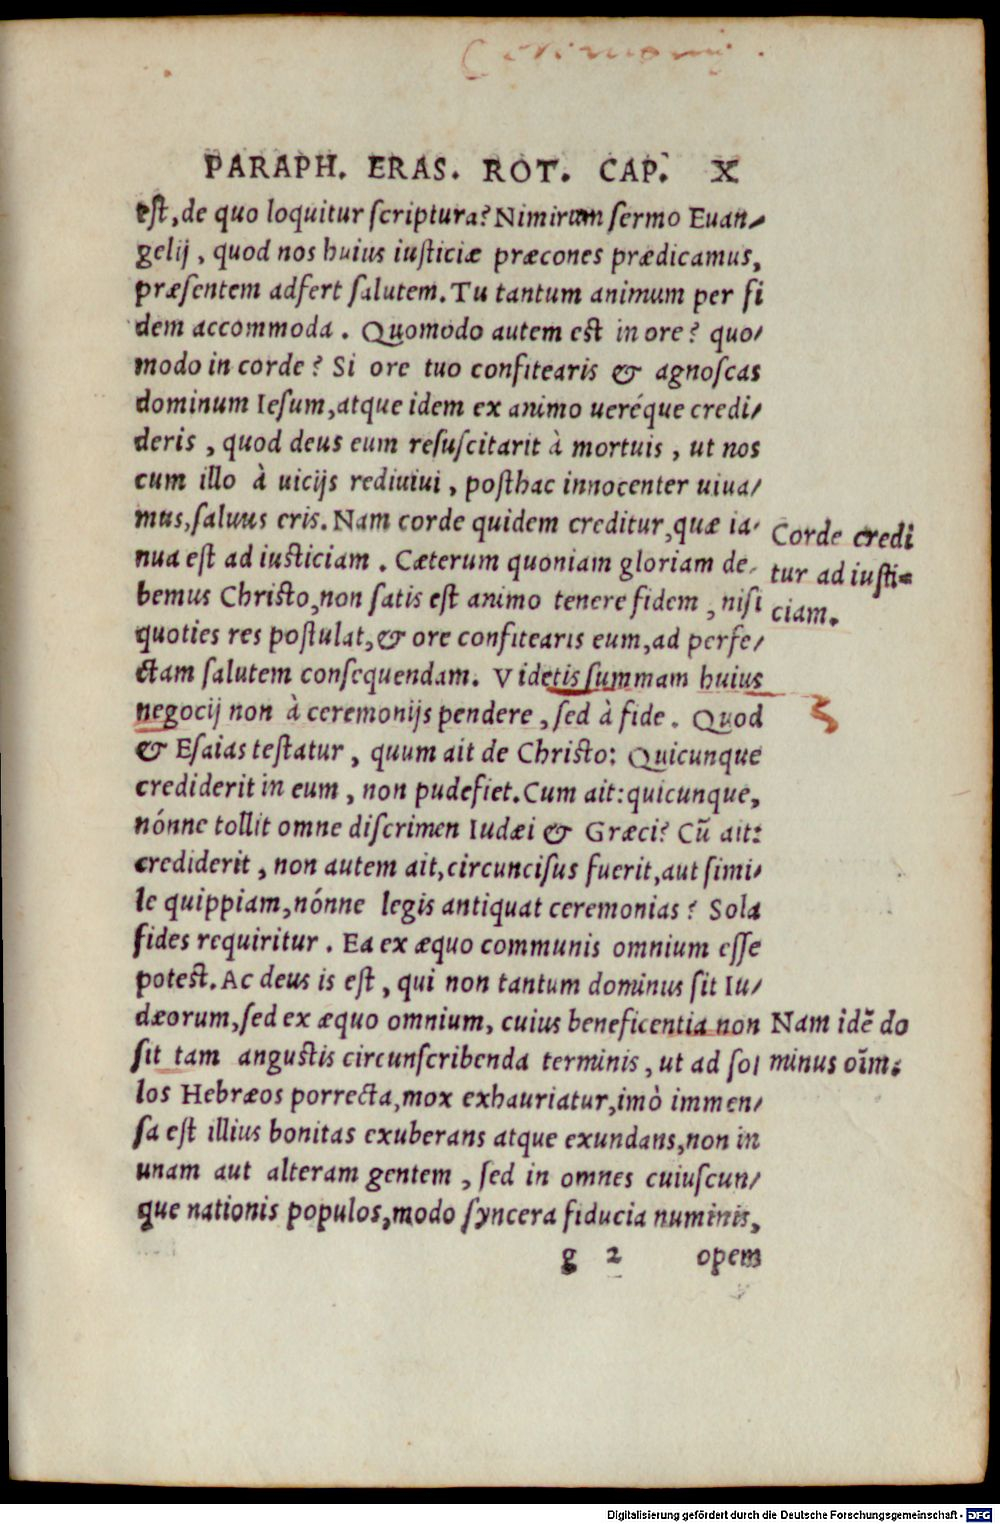 Ceremoniæ.
PARAPH. ERAS. ROT. CAP. X
est, de quo loquitur scriptura? Nimirum sermo Euan-
gelij, quod nos huius iusticiæ præcones prædicamus,
præsentem adfert salutem. Tu tantum animum per fi
dem accommoda. Quomodo autem est in ore? quo-
modo in corde? Si ore tuo confitearis & agnoscas
dominum Iesum, atque idem ex animo ueréque credi-
deris, quod deus eum resuscitarit à mortuis, ut nos
cum illo à uicijs rediuiui, posthac innocenter uiua-
mus, saluus eris. Nam corde quidem creditur, quæ ia-
nua est ad iusticiam. Cæterum quoniam gloriam de-
bemus Christo, non satis est animo tenere fidem, nisi
quoties res postulat, & ore confitearis eum, ad perfe-
ctam salutem consequendam. Videtis summam huius
negocij non à ceremonijs pendere, sed à fide. Quod
& Esaias testatur, quum ait de Christo: Quicunque
crediderit in eum, non pudefiet. Cum ait: quicunque,
nónne tollit omne discrimen Iudæi & Græci? Cū ait:
crediderit, non autem ait, circuncisus fuerit, aut simi-
le quippiam, nónne legis antiquat ceremonias? Sola
fides requiritur. Ea ex æquo communis omnium esse
potest. Ac deus is est, qui non tantum dominus sit Iu-
dæorum, sed ex æquo omnium, cuius beneficentia non
sit tam angustis circunscribenda terminis, ut ad sol
los Hebræos porrecta, mox exhauriatur, imò immen-
sa est illius bonitas exuberans atque exundans, non in
unam aut alteram gentem, sed in omnes cuiuscun-
que nationis populos, modo syncera fiducia numinis,
g 2 opem
Corde credi
tur ad iusti=
ciam.
Nam idē do
minus oīm:
Digitalisierung gefördert durch die Deutsche Forschungsgemeinschaft - DFG